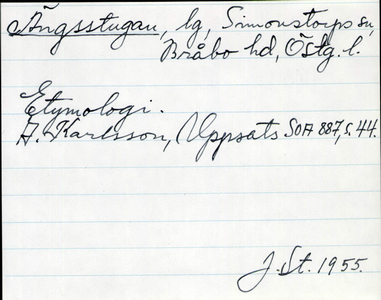 Ängsstugan, lg, Simonstorps sn,
Bråbo hd, Östg. l.
Etymologi.
A. Karlsson, Uppsats SOA 887, s. 44.
J. St. 1955.